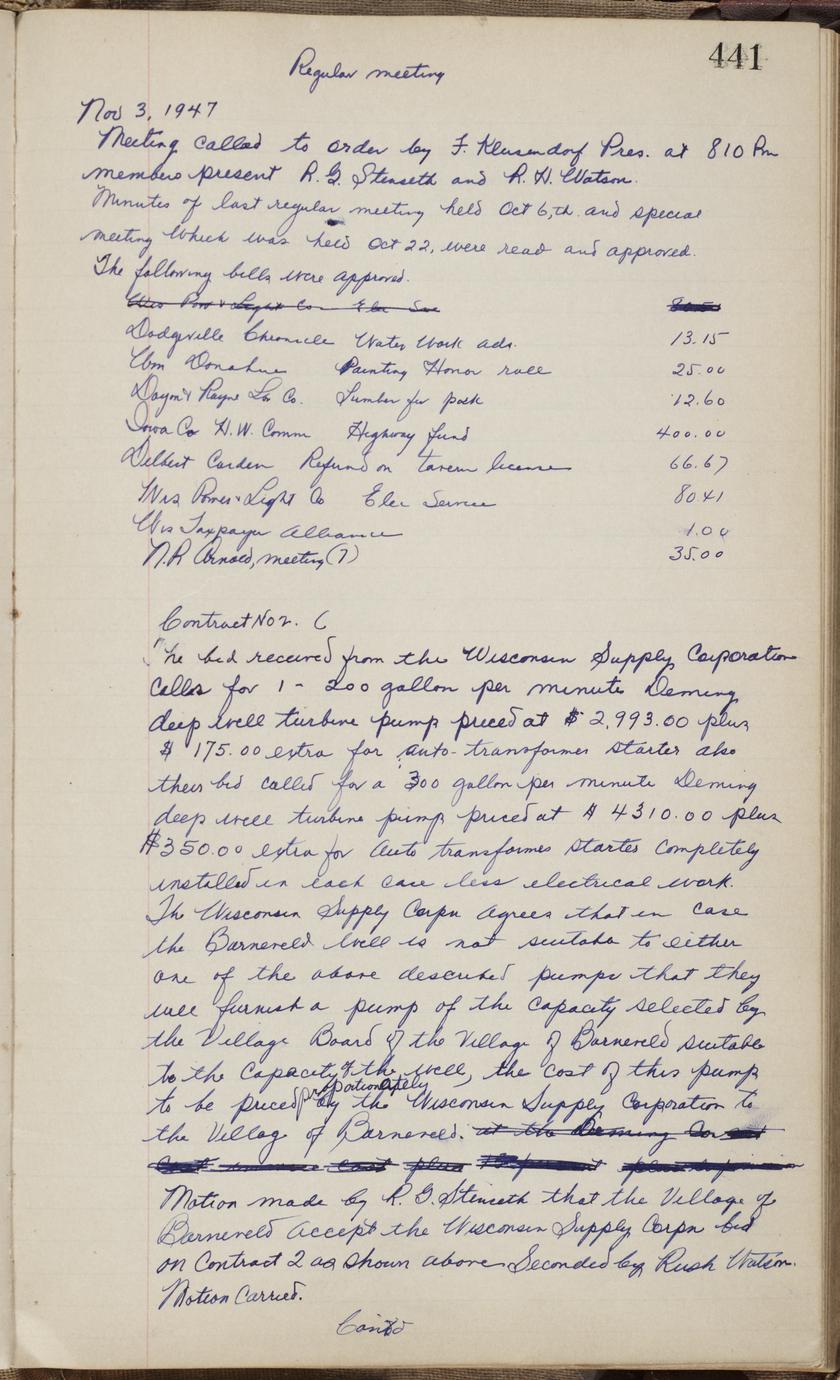 441
Regular meeting
Nov 3, 1947
Meeting called to order by F. Klusendorf Pres. at 810 Pm
members present R.G. Stenseth and R.H. Watson.
Minutes of last regular meeting held Oct 6,th. and special
meeting which was held Oct 22, were read and approved.
The following bills were approved.
Wis Pow & Light Co Elec Ser
Dodgeville Chronicle Water Work ads. 13.15
Wm Donahue Painting Honor roll 25.00
& Rayne Lbr Co. Lumber for park 12.60
Iowa Co H.W. Comm Highway fund 400.00
Delbert Carden Refund on tavern license 66.67
Wis Power & Light Co Elec Service 80.41
Wis Taxpayer Alliance 1.00
N.R Arnold, meeting (7) 35.00
Contract No 2.
The bid received from the Wisconsin Supply Corporation
calls for 1 - 200 gallon per minute Deming
deep well turbine pump priced at $ 2,993.00 plus
$ 175.00 extra for auto-transformer starter also
their bid called for a 300 gallon per minute Deming
deep well turbine pump priced at $ 4310.00 plus
$350.00 extra for Auto transformer starter completely
installed in each case less electrical work.
The Wisconsin Supply Corpn agrees that in case
the Barneveld well is not suitable to either
one of the above described pumps that they
will furnish a pump of the capacity selected by
the Village Board of the Village of Barneveld suitable
to the capacity of the well, the cost of this pump
to be priced proportionately by the Wisconsin Supply Corporation to
the Village of Barneveld. at the Deming Co
cost plus
Motion made by R.G. Stenseth that the Village of
Barneveld accept the Wisconsin Supply Corpn bid
on Contract 2 as shown above Seconded by Rush Watson.
Motion Carried.
Cont'd